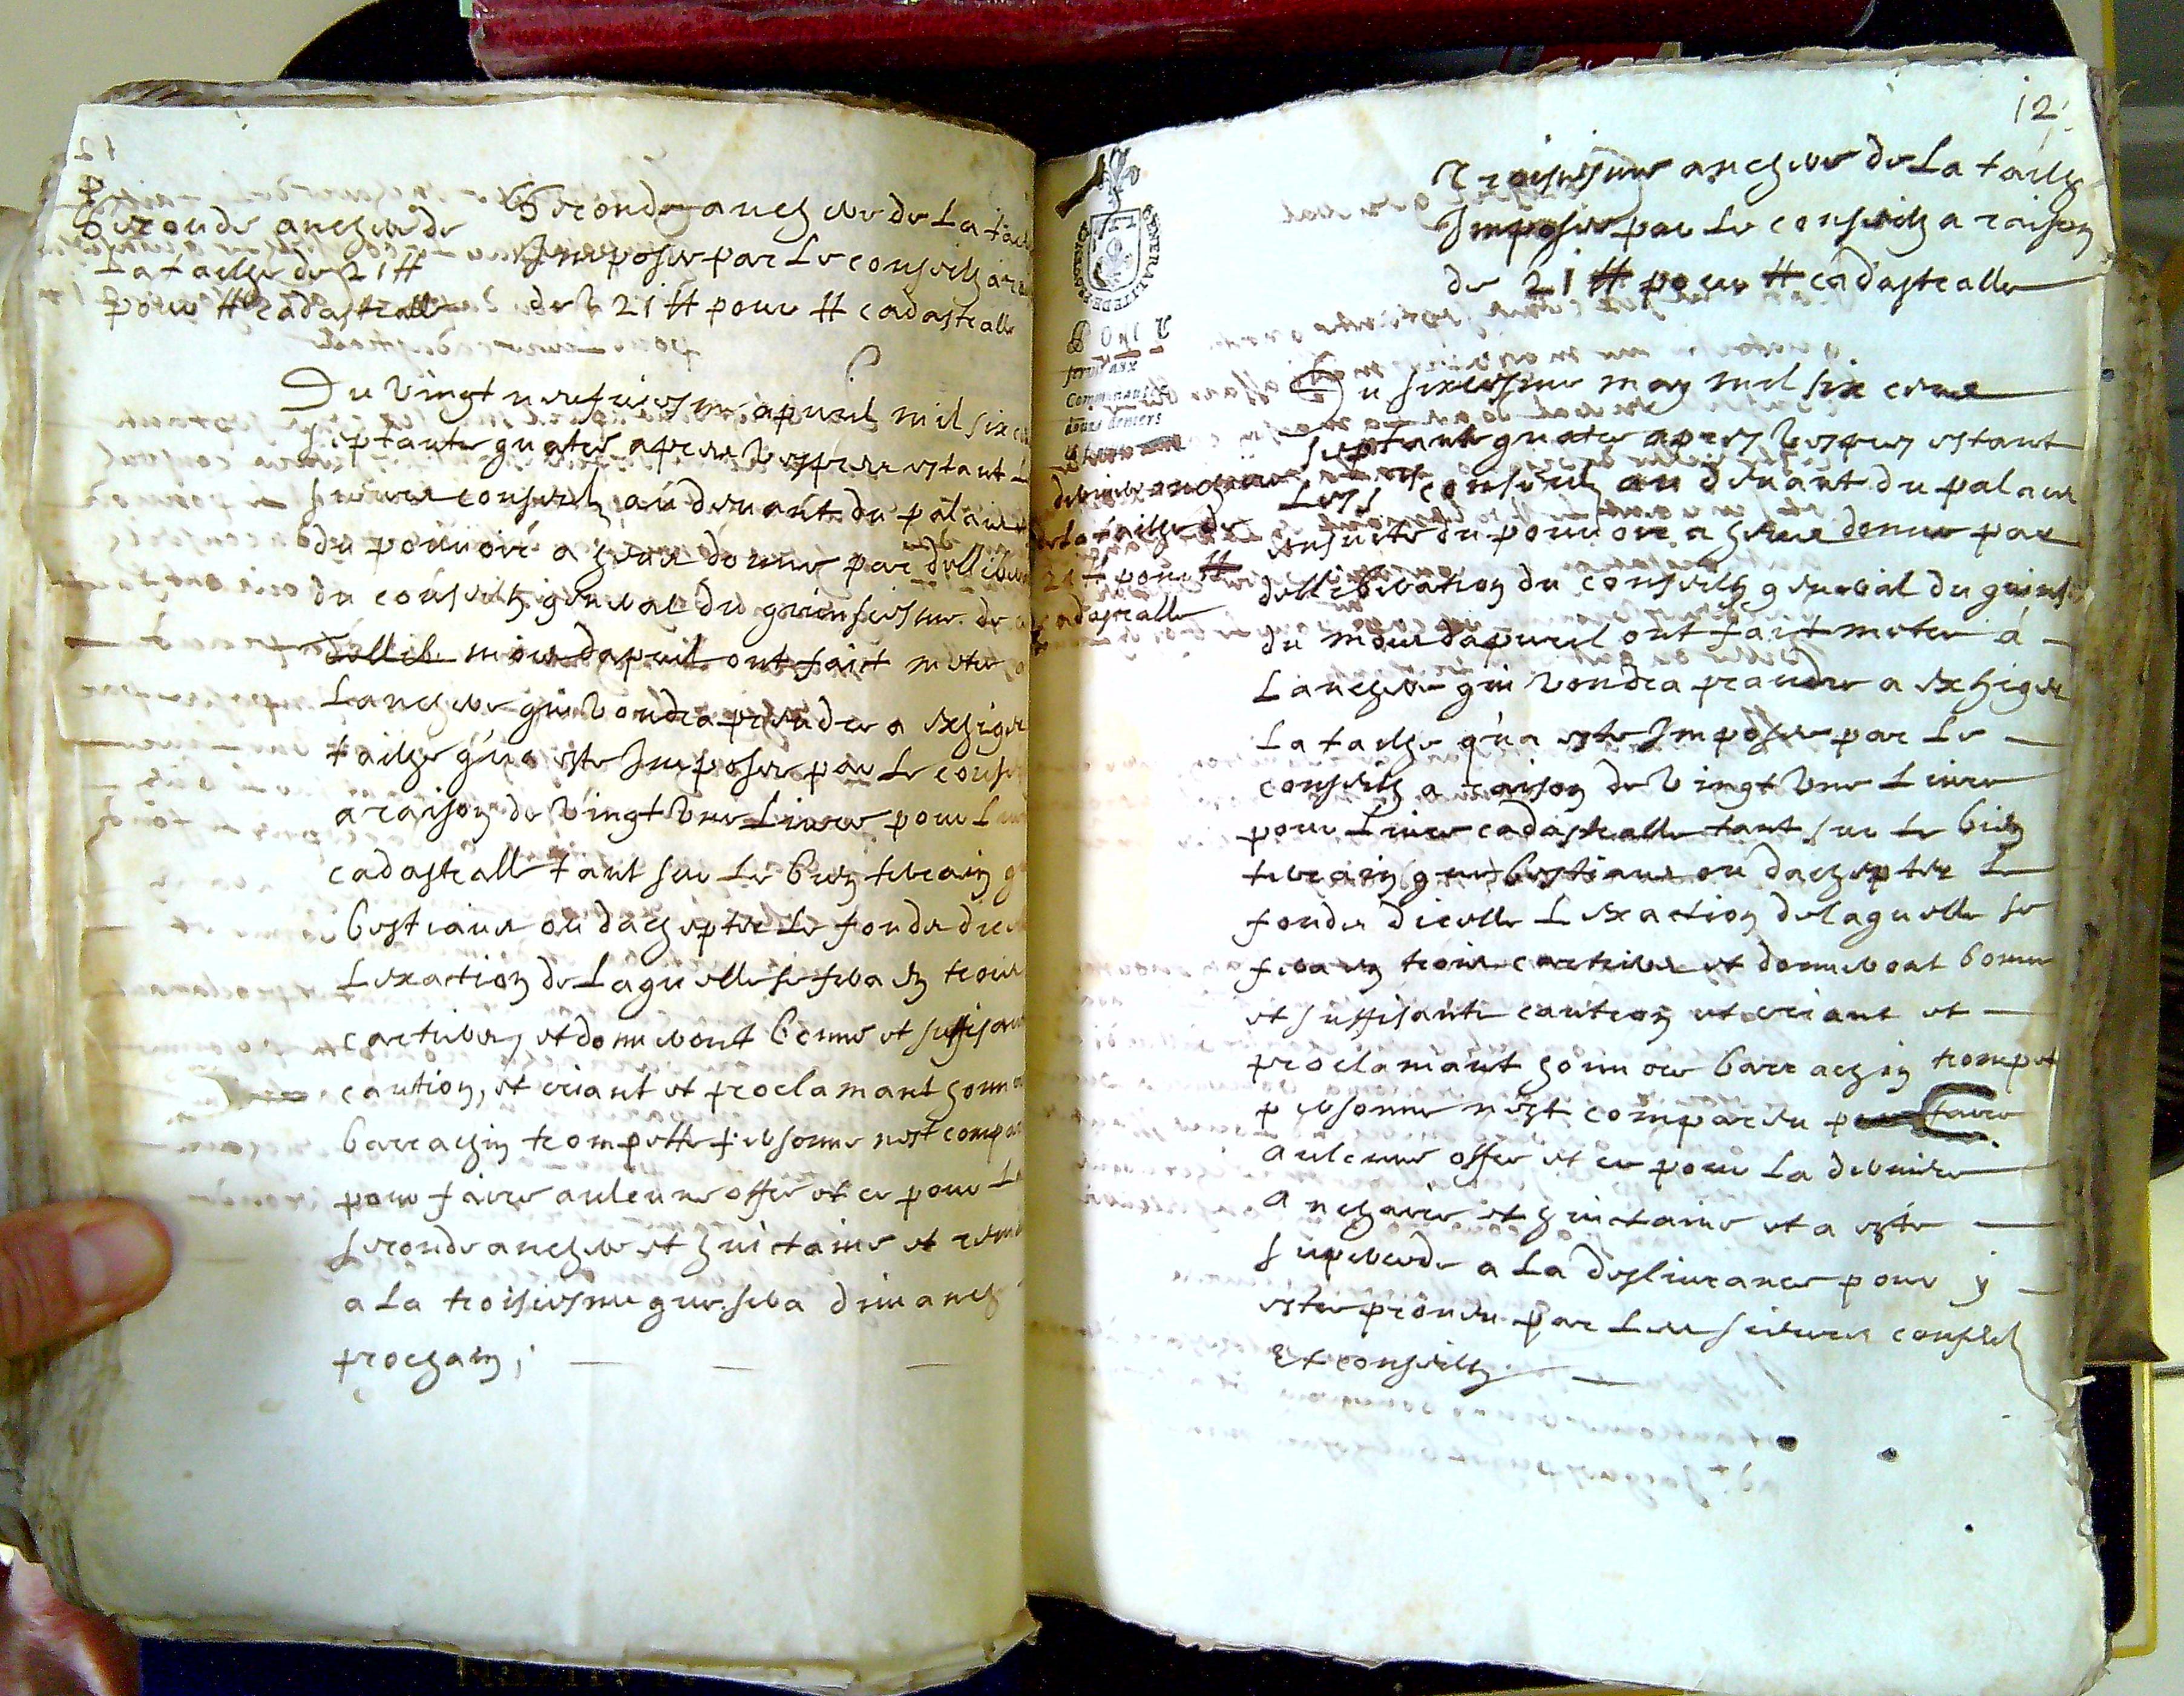 Seconde anchere de
la tailhe de 21 ⁒
pour ⁒ cadastralle
Seconde anchere de la tail
Imposee par le conseilh a ra
de 21 ⁒ pour ⁒ cadastralle
Du vingt neufviesme apvril mil six c
septante quatre apres vespres estant l
sieurs conseulz au devant du palais
du pouvoir a heux donne par dellibera
du conseilh general du quinsiesme de
dellib mois dapvril ont faict metre a
lanchere qui voudra prendre a exhiger
tailhe qu'a este Imposee par le conse
a raison de vingt une livre pour l
cadastralle tant sur le bien terrain q
bestiaux ou dachepter le fonds dic
lexaction de laquelle se fera en trois
cartiers, et donneront bonne et suffisan
caution, et criant et proclamant honn
barrachin trompette personne nest compar
pour faire aulcune offre et ce pour la
seconde anchere et huictaine et remi
a la troisiesme que sera dimanch
prochain;
12
Troisiesme anchere de la tailhe
Imposee par le conseilh a raison
de 21 ⁒ pour ⁒ cadastralle
GENERALITE DE PROVENCE
BON
pour aux
Communautés
deux deniers
derniere anchere
de la tailhe de
21 ⁒ pour ⁒
cadastralle
Du sixiesme may mil six cens
septante quatre apres vespres estant
les srs conseulz au devant du palais
ensuite du pouvoir a heux donne par
dellibération du conseilh general du quins
du mois dapvril ont faict metre a
lanchere qui voudra prandre a exhiger
la tailhe qu'a este Imposee par le
conseilh a raison de vingt une livre
pour livre cadastralle tant sur le bien
terrain que bestiaux ou dachepter le
fonds dicelle lexaction de laquelle se
fera en trois cartiers et donneront bonne
et suffisante caution et criant et
proclamant honnore barrachin trompet
personne nest compareu pour faire
aulcune offre et ce pour la derniere
anchere et huictaine et a este
supercede a la deslivrance pour y
estre proveu par les sieurs conseulz
Et conseilh.